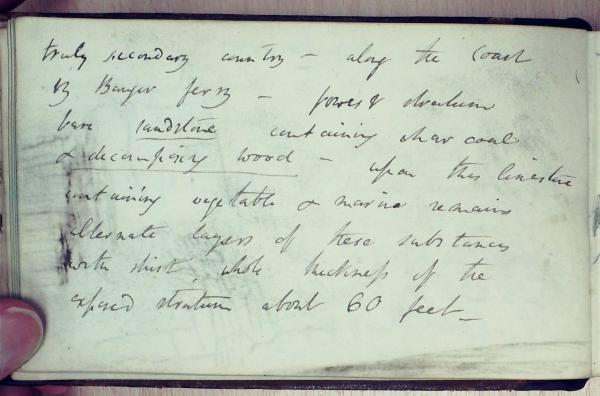 truly secondary country – along the coast
by Bangor ferry – lowest stratum
bare sandstone containing charcoal
& decomposing wood – upon this limestone
containing vegetable & marine remains
alternate layers of these substances
with shist, whole thickness of the
exposed stratum about 60 feet –